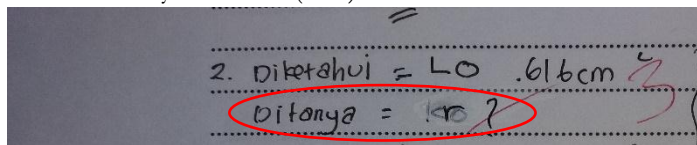 2. Diketahui = LO .616cm²
Ditanya = r ?